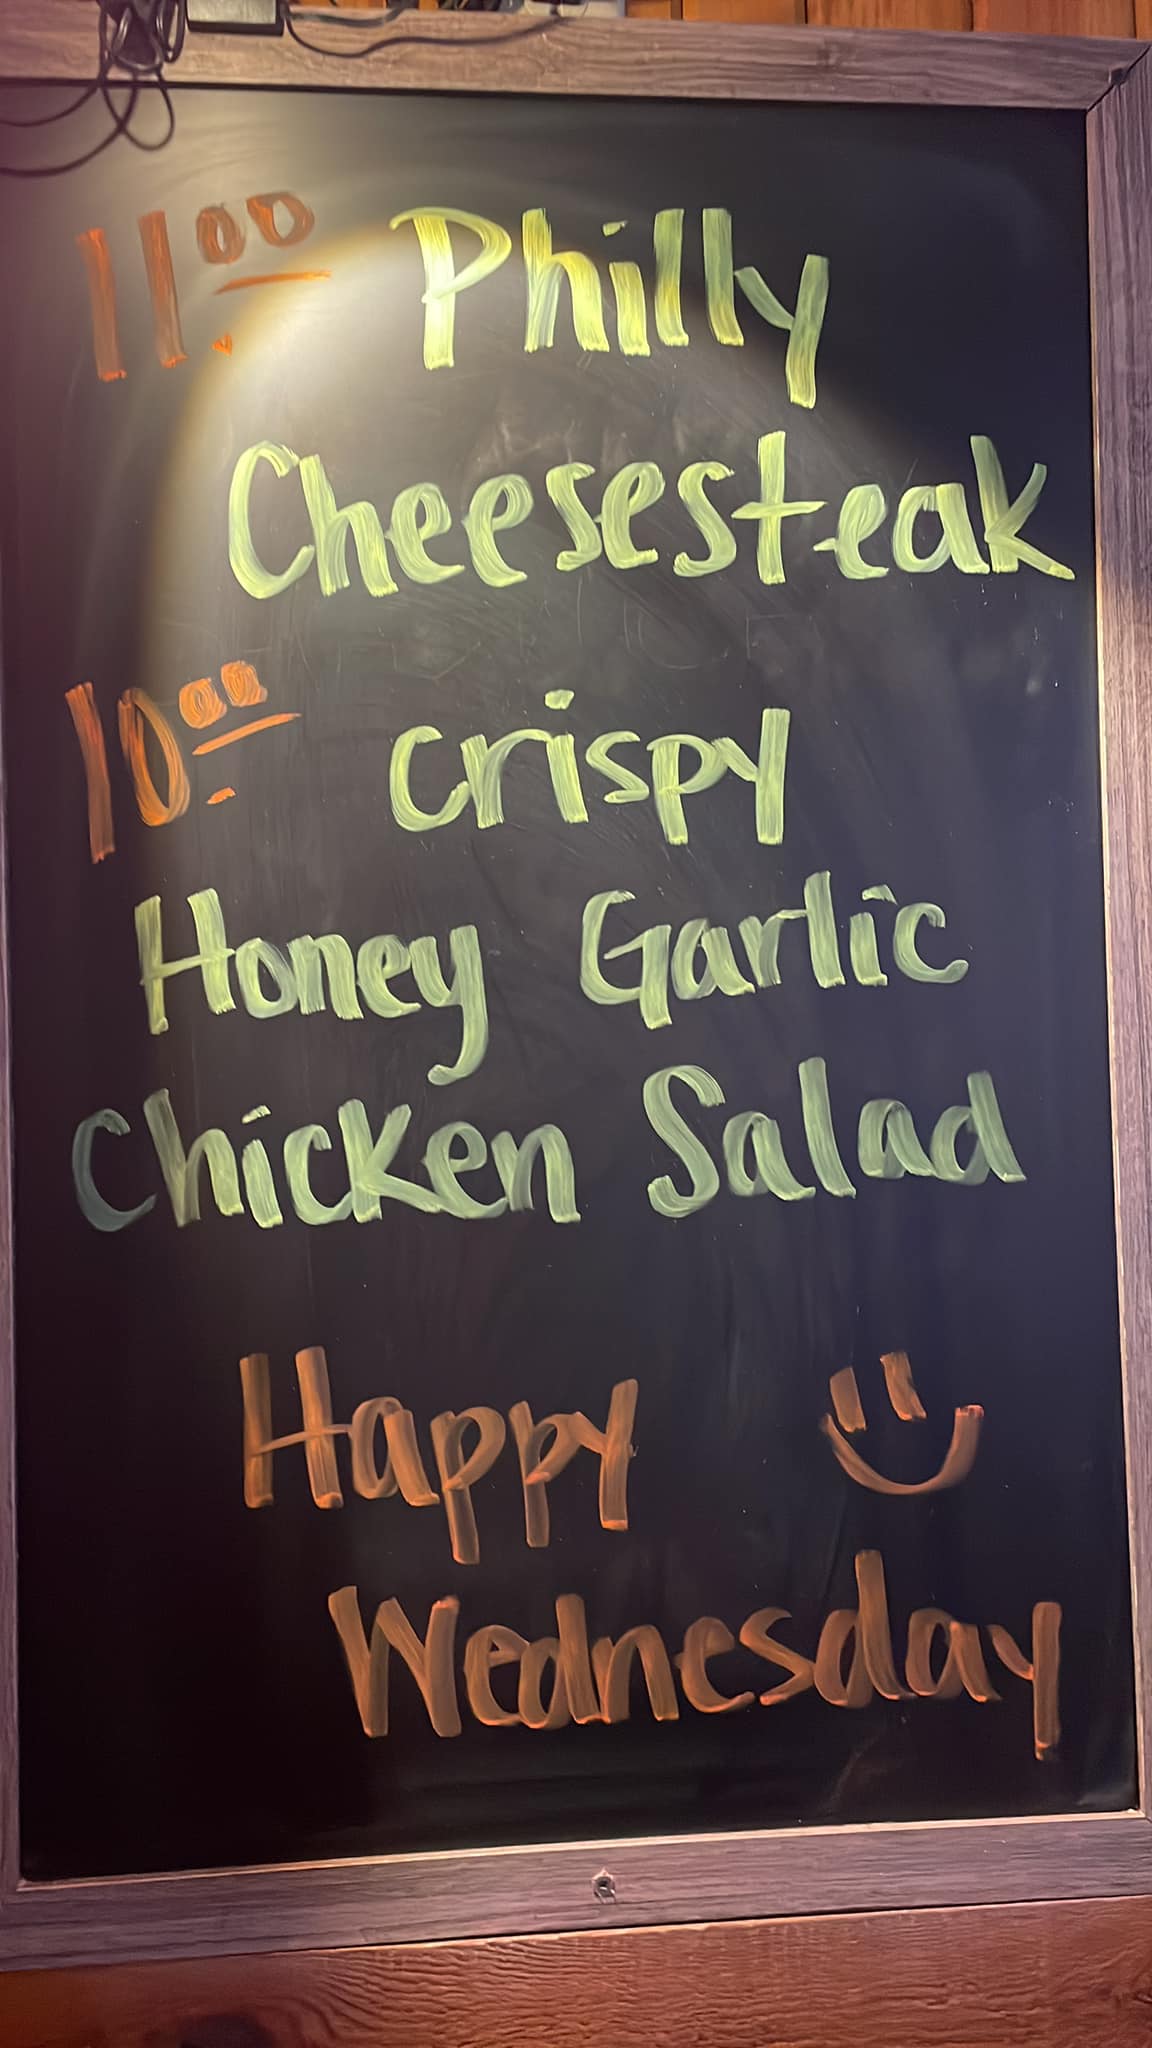 11.00 Philly
Cheesesteak
10.00 Crispy
Honey Garlic
Chicken Salad
Happy
Wednesday